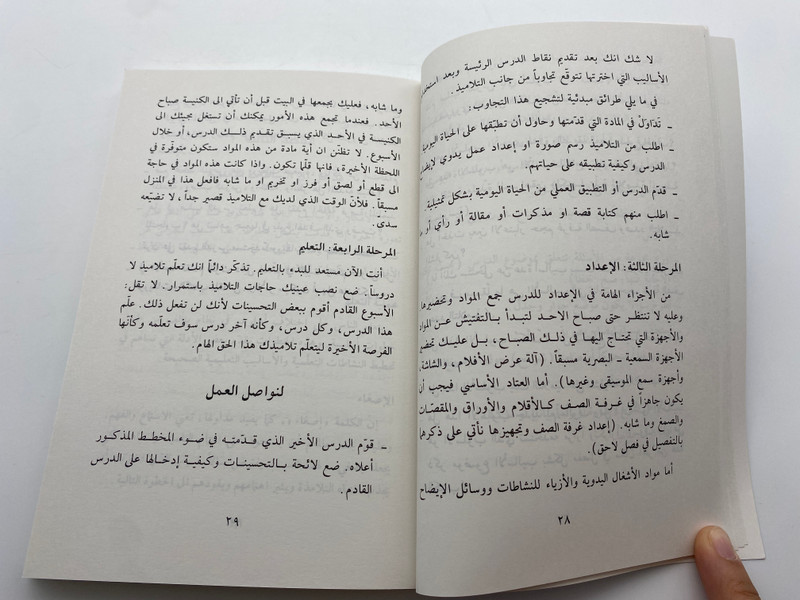 لا شك انك بعد تقديم نقاط الدرس الرئيسة وبعد
الأساليب التي اخترتها تتوقّع تجاوباً من جانب التلاميذ .
في ما يلي طرائق مبدئية لتشجيع هذا التجاوب:
ـ تَدَاوَلْ في المادة التي قدّمتها وحاول أن تطبّقها على الحياة اليومية
ـ اطلب من التلاميذ رسم صورة او إعداد عمل يدوي
الدرس وكيفية تطبيقه على حياتهم.
ـ قدّم الدرس أو التطبيق العملي من الحياة اليومية بشكل تمثيلية.
ـ اطلب منهم كتابة قصة او مذكرات أو مقالة أو رأي أو
شابه.
المرحلة الثالثة: الإعداد
من الأجزاء الهامة في الإعداد للدرس جمع المواد وتحضيرها
وعليه لا تنتظر حتى صباح الاحد لتبدأ بالتفتيش عن المواد
والأجهزة التي تحتاج اليها في ذلك الصباح، بل عليك تحضير
الأجهزة السمعية ـ البصرية مسبقاً. (آلة عرض الأفلام، والشاشة،
وأجهزة سمع الموسيقى وغيرها). أما العتاد الأساسي فيجب أن
يكون جاهزاً في غرفة الصف كالأقلام والأوراق والمقصّات
والصمغ وما شابه. (إعداد غرفة الصف وتجهيزها نأتي على ذكرها
بالتفصيل في فصل لاحق).
أما مواد الأشغال اليدوية والأزياء للنشاطات ووسائل الإيضاح
٢٨
وما شابه، فعليك بجمعها في البيت قبل أن تأتي الى الكنيسة صباح
الأحد. فعندما تجمع هذه الأمور يمكنك أن تستغل مجيئك الى
الكنيسة في الأحد الذي يسبق تقديم ذلك الدرس، أو خلال
الأسبوع. لا تظنّن ان أية مادة من هذه المواد ستكون متوفّرة في
اللحظة الأخيرة، فانها قلّما تكون. واذا كانت هذه المواد في حاجة
الى قطع أو لصق أو فرز او تخريم او ما شابه فافعل هذا في المنزل
مسبقاً. فلأنّ الوقت الذي لديك مع التلاميذ قصير جداً، لا تضيّعه
سدىً.
المرحلة الرابعة: التعليم
أنت الآن مستعد للبدء بالتعليم. تذكّر دائماً انك تعلّم تلاميذ لا
دروساً. ضع نصب عينيك حاجات التلاميذ باستمرار. لا تقل:
الأسبوع القادم أقوم ببعض التحسينات لأنك لن تفعل ذلك. علّم
هذا الدرس، وكل درس، وكأنه آخر درس سوف تعلّمه وكأنّها
الفرصة الأخيرة ليتعلّم تلاميذك هذا الحق الهام.
لنواصل العمل
ـ قوّم الدرس الأخير الذي قدّمته في ضوء المخطط المذكور
أعلاه. ضع لائحة بالتحسينات وكيفية إدخالها على الدرس
القادم.
٢٩